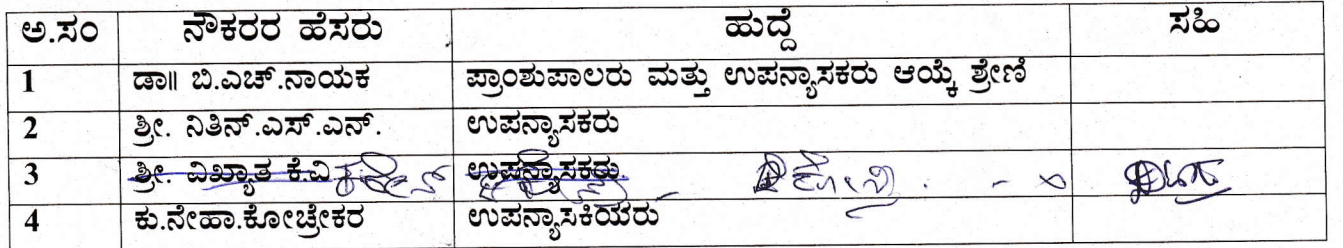 ಅ.ಸಂ ನೌಕರರ ಹೆಸರು ಹುದ್ದೆ ಸಹಿ
1 ಡಾ॥ ಬಿ.ಎಚ್.ನಾಯಕ ಪ್ರಾಂಶುಪಾಲರು ಮತ್ತು ಉಪನ್ಯಾಸಕರು ಆಯ್ಕೆ ಶ್ರೇಣಿ
2 ಶ್ರೀ. ನಿತಿನ್.ಎಸ್.ಎನ್. ಉಪನ್ಯಾಸಕರು
3 ಶ್ರೀ. ವಿಖ್ಯಾತ ಕೆ.ವಿ ಉಪನ್ಯಾಸಕರು.
4 ಕು.ನೇಹಾ.ಕೋಚ್ರೇಕರ ಉಪನ್ಯಾಸಕಿಯರು